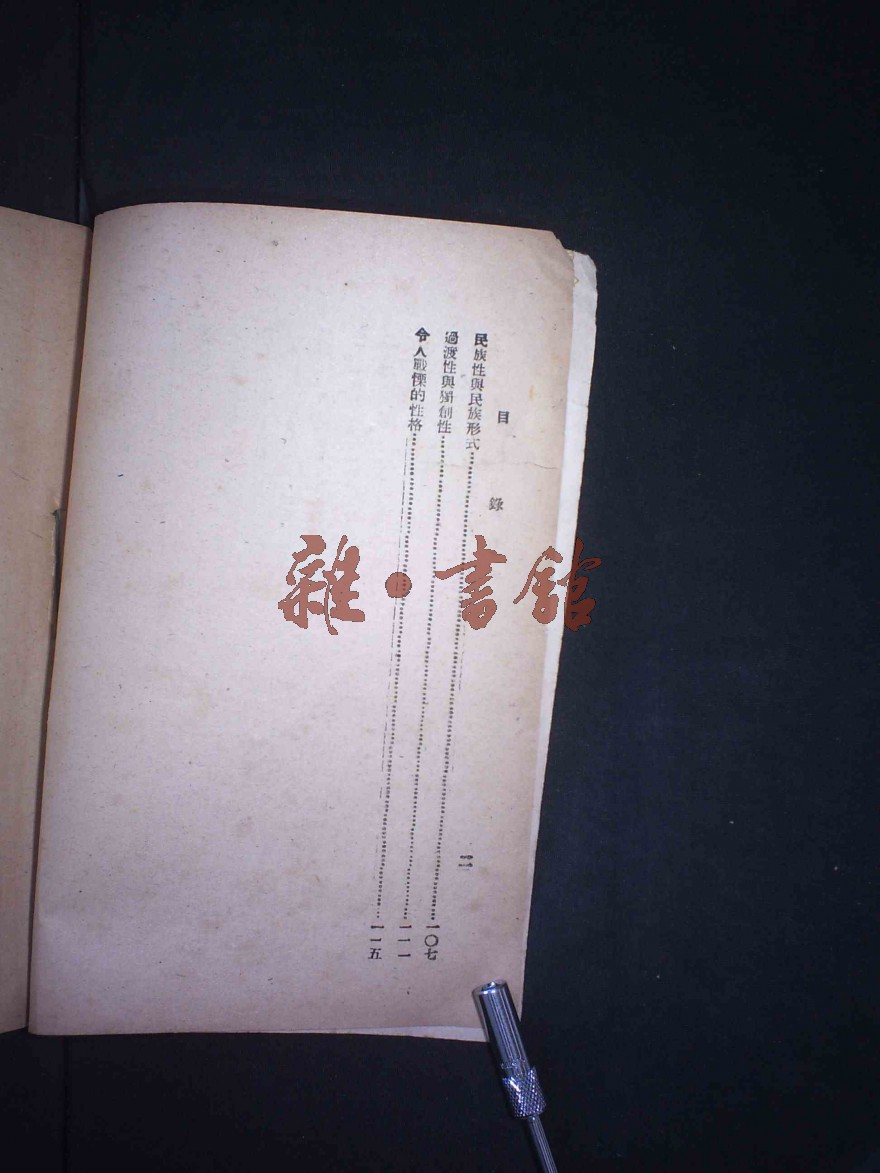 目錄
民族性與民族形式……一〇七
過渡性與獨創性……一一一
令人戰慄的性格……一一五
雜·書館